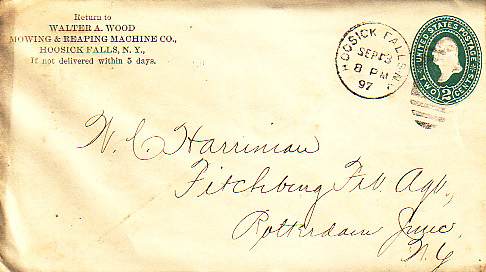 Return to
WALTER A. WOOD
MOWING & REAPING MACHINE CO.,
HOOSICK FALLS, N. Y.,
If not delivered within 5 days.
HOOSICK FALLS N.Y.
SEP 13
8 PM
97
UNITED STATES POSTAGE
TWO 2 CENTS
W. C. Harriman
Fitchburg Frt. Agt.,
Rotterdam Junc.
N.Y.